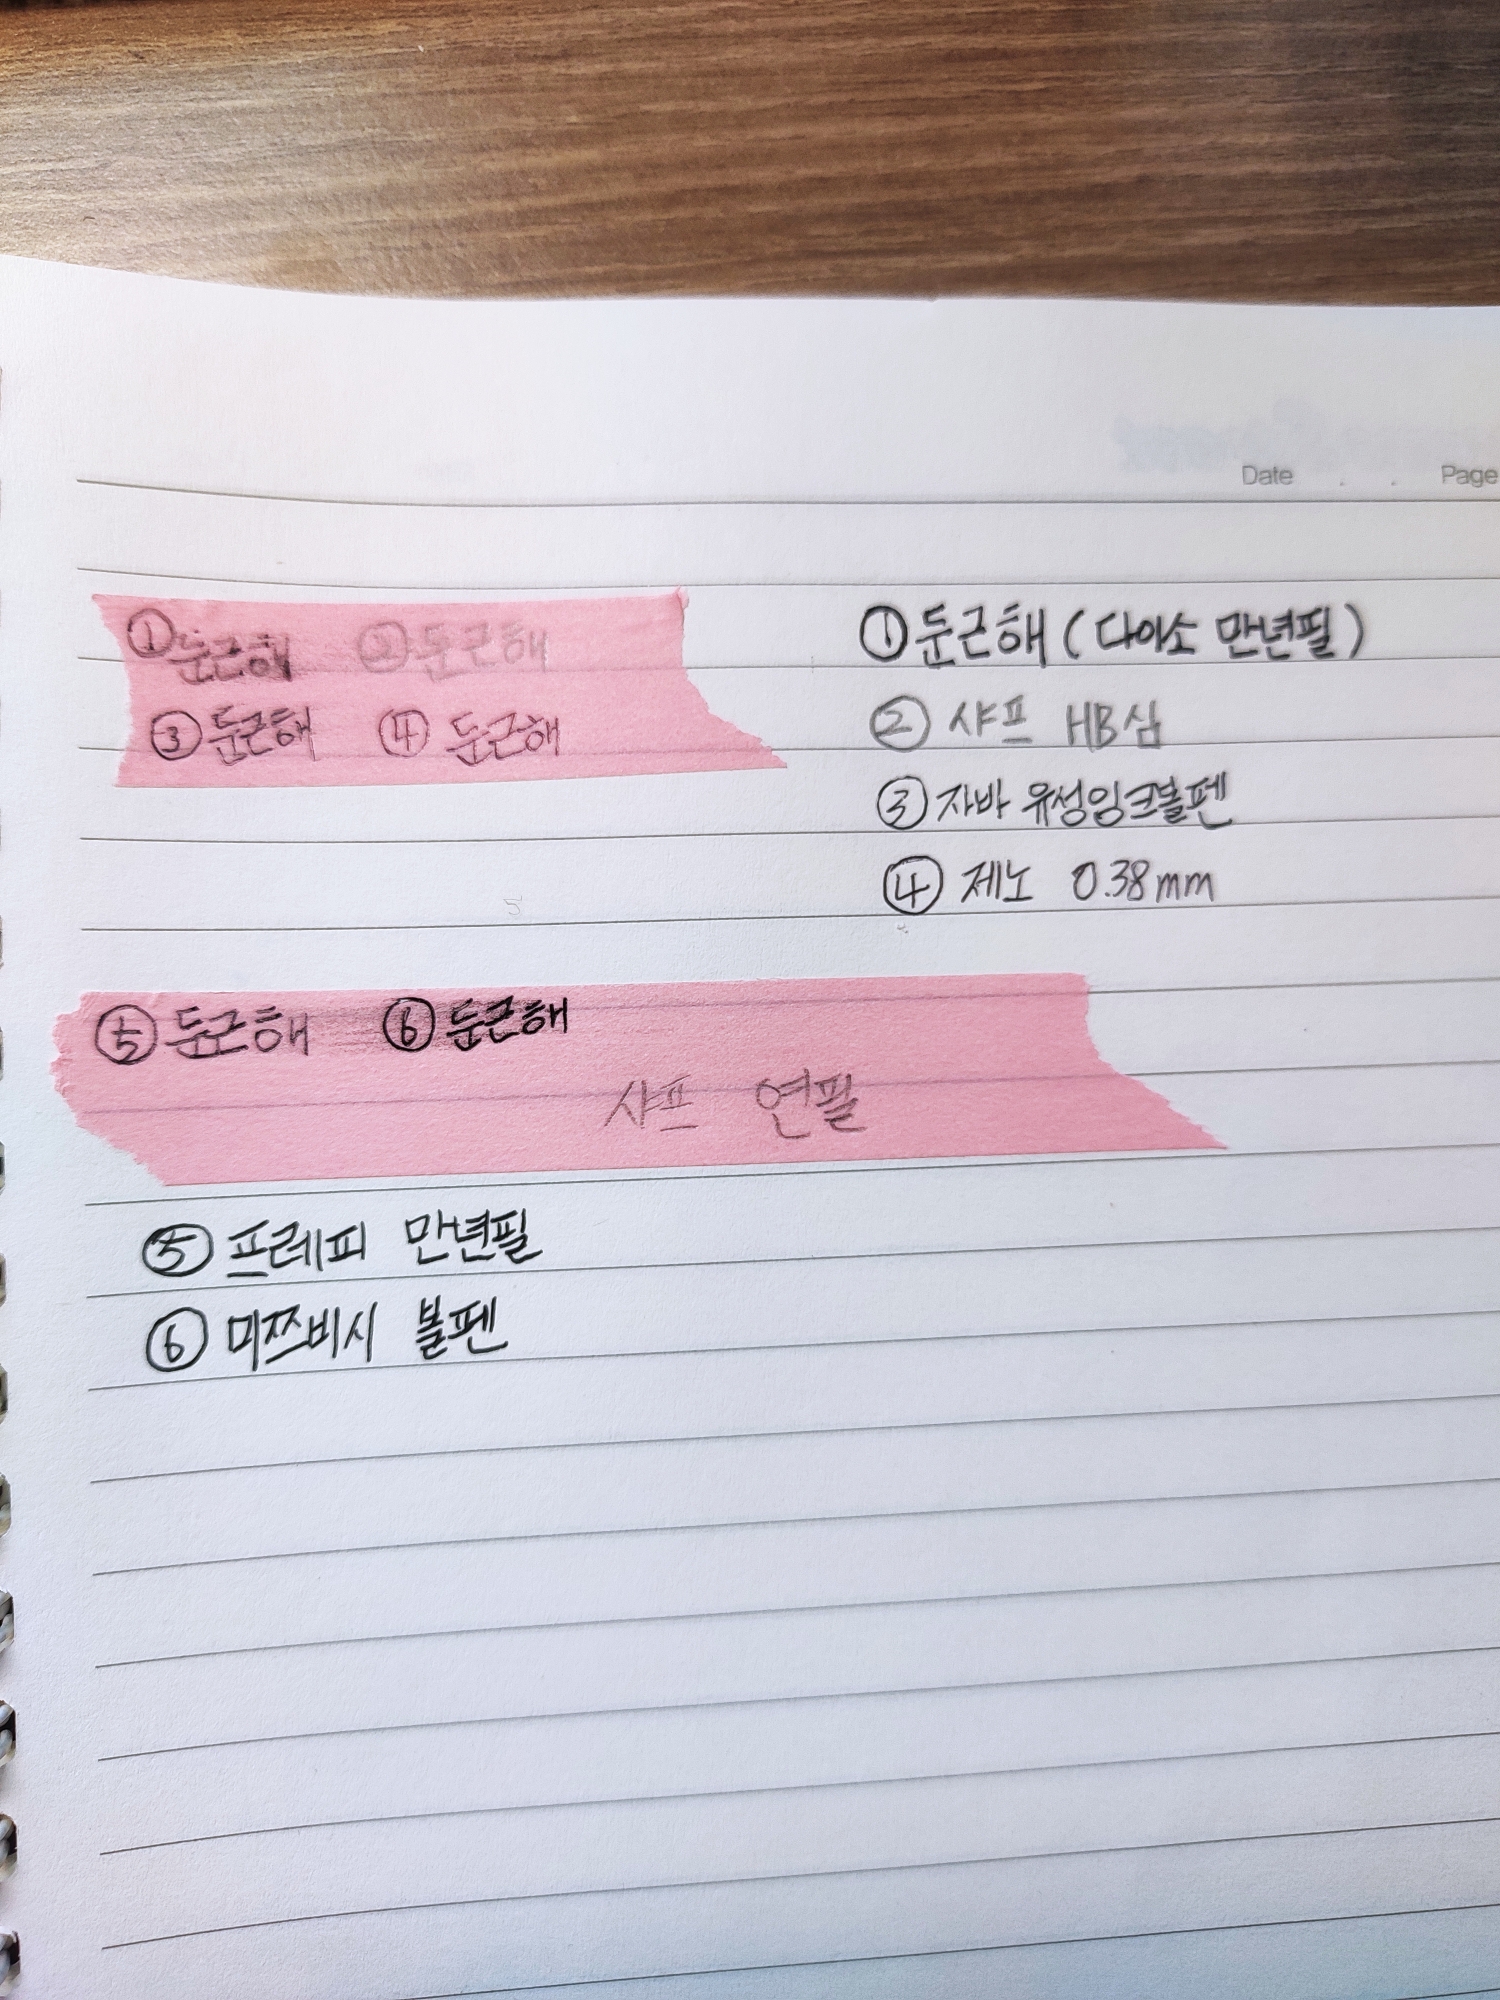 Date . . Page
①둔근해 ②둔근해
③둔근해 ④ 둔근해
①둔근해 (다이소 만년필)
② 샤프 HB심
③자바 유성잉크볼펜
④ 제노 0.38mm
5
⑤둔근해 ⑥둔근해
샤프 연필
⑤ 프레피 만년필
⑥ 미쯔비시 볼펜